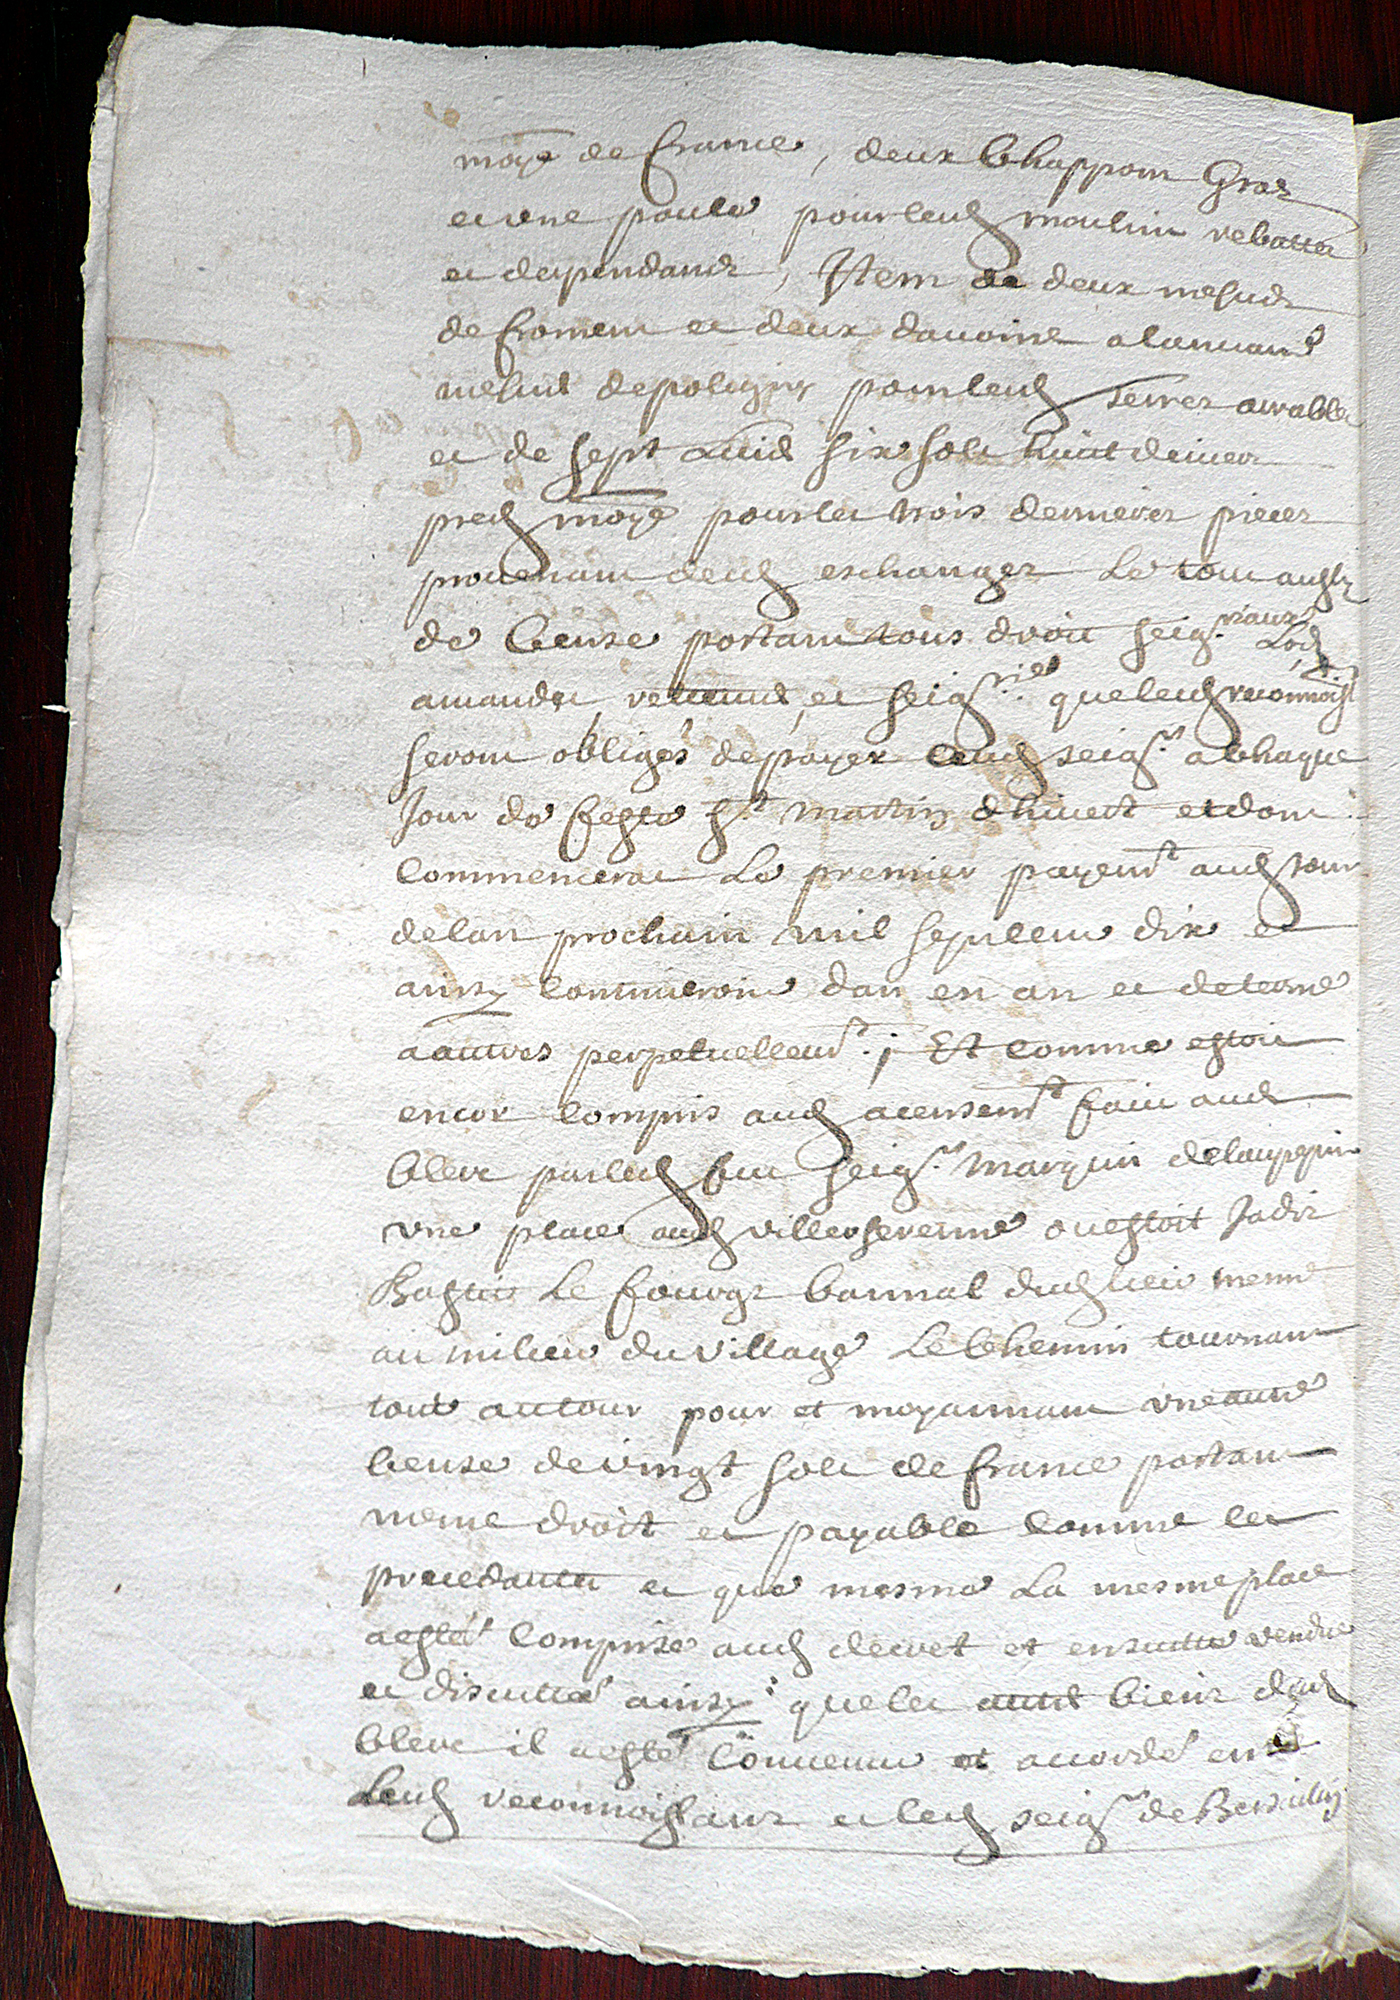 moñe de france, deux Chappons Gras
et une poule pour lesd moulin rebatte
et dependance, Item de deux mesures
de froment et deux davoine a lancienne
mesure de poligny pour lesd terres airables
et de sept solz huit deniers
pred moñe pour les trois dernieres pieces
provenant desd eschanges Le tout aussy
de Cense portant tous droit seig.riaux Lods
amandes retenue et seig.rie que lesd reconnoiss
seront obligés de payer aud seig.r a Chaque
Jour de feste St martin dhivert et dont
Commencerat Le premier payemt aud Jour
de lan prochain mil sept cent dix et
ainsy continueront dan en an et de terme
a autres perpetuellemt.; Et comme estoit
encor Compris aud acensemt fait aud
Clerc par led feu seig.r Marquis
une place aud villerserine ou estoit Jadis
Bastit Le fourgz bannal dud lieu
au milieu du village Le Chemin tournant
tout autour pour et moyannant une autre
Cense de vingt solz de france portant
meme droit et payable comme les
precedantes et que mesme La mesme place
a esté Comprise aud decret et ensuitte vendue
et discuttée ainsy que les autres biens dud
Clerc il a esté Convenu et accordé entre
Lesd reconnoissans et led seig.r de Bersaillin